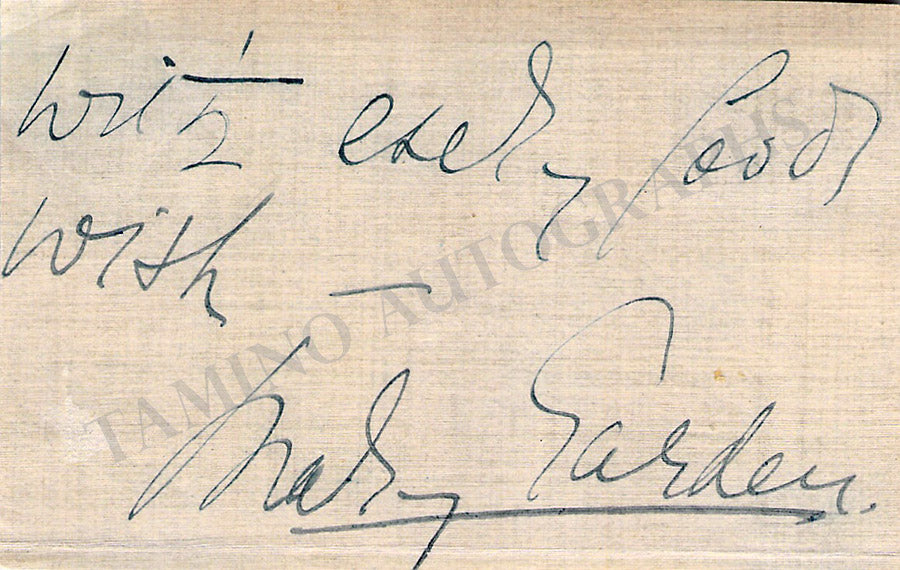 with every good
wish —
Mary Garden.
TAMINO AUTOGRAPHS